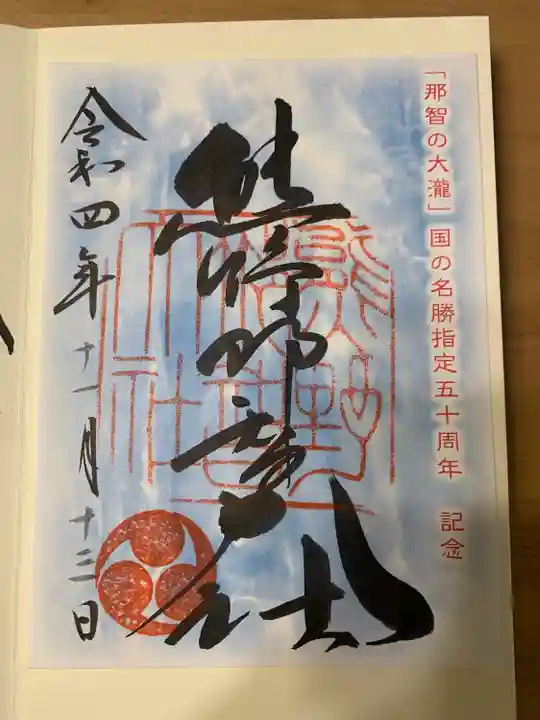 「那智の大瀧」国の名勝指定五十周年 記念
熊野那智大社
令和四年十一月十三日